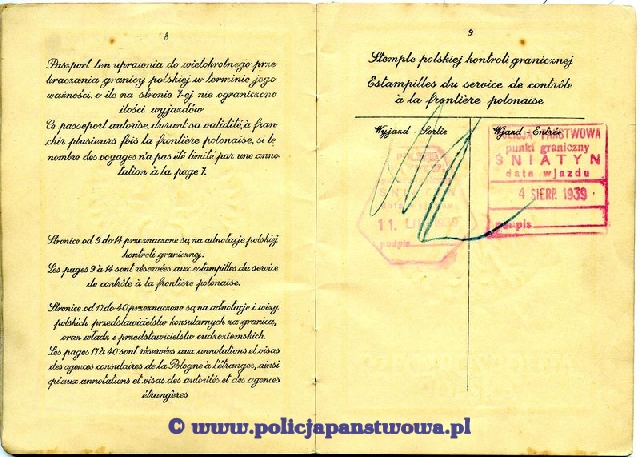 8
Paszport ten uprawnia do wielokrotnego prze
kraczania granicy polskiej w terminie jego
ważności, o ile na stronie 7-ej nie ograniczono
ilości wyjazdów
Ce passeport autorise, durant sa validité à fran
chir plusieurs fois la frontière polonaise, si le
nombre des voyages n'a pas été limité par une anno
tation à la page 7.
Stronice od 9 do 14 przeznaczone są na adnotacje polskiej
kontroli granicznej.
Les pages 9 à 14 sont réservées aux estampilles du service
de contrôle à la frontière polonaise.
Stronice od 17 do 40 przeznaczone są na adnotacje i wizy
polskich przedstawicielstw konsularnych za granicą,
oraz władz i przedstawicielstw cudzoziemskich.
Les pages 17 à 40 sont réservées aux annotations et visas
des agences consulaires de la Pologne à l'étranger, ainsi
qu'aux annotations et visas des autorités et des agences
étrangères
9
Stemple polskiej kontroli granicznej
Estampilles du service de contrôle
à la frontière polonaise
Wyjazd - Sortie
Wjazd - Entrée
11.
podpis
PAŃSTWOWA
punkt graniczny
ŚNIATYN
data wjazdu
4 SIERP. 1939
podpis
© www.policjapanstwowa.pl